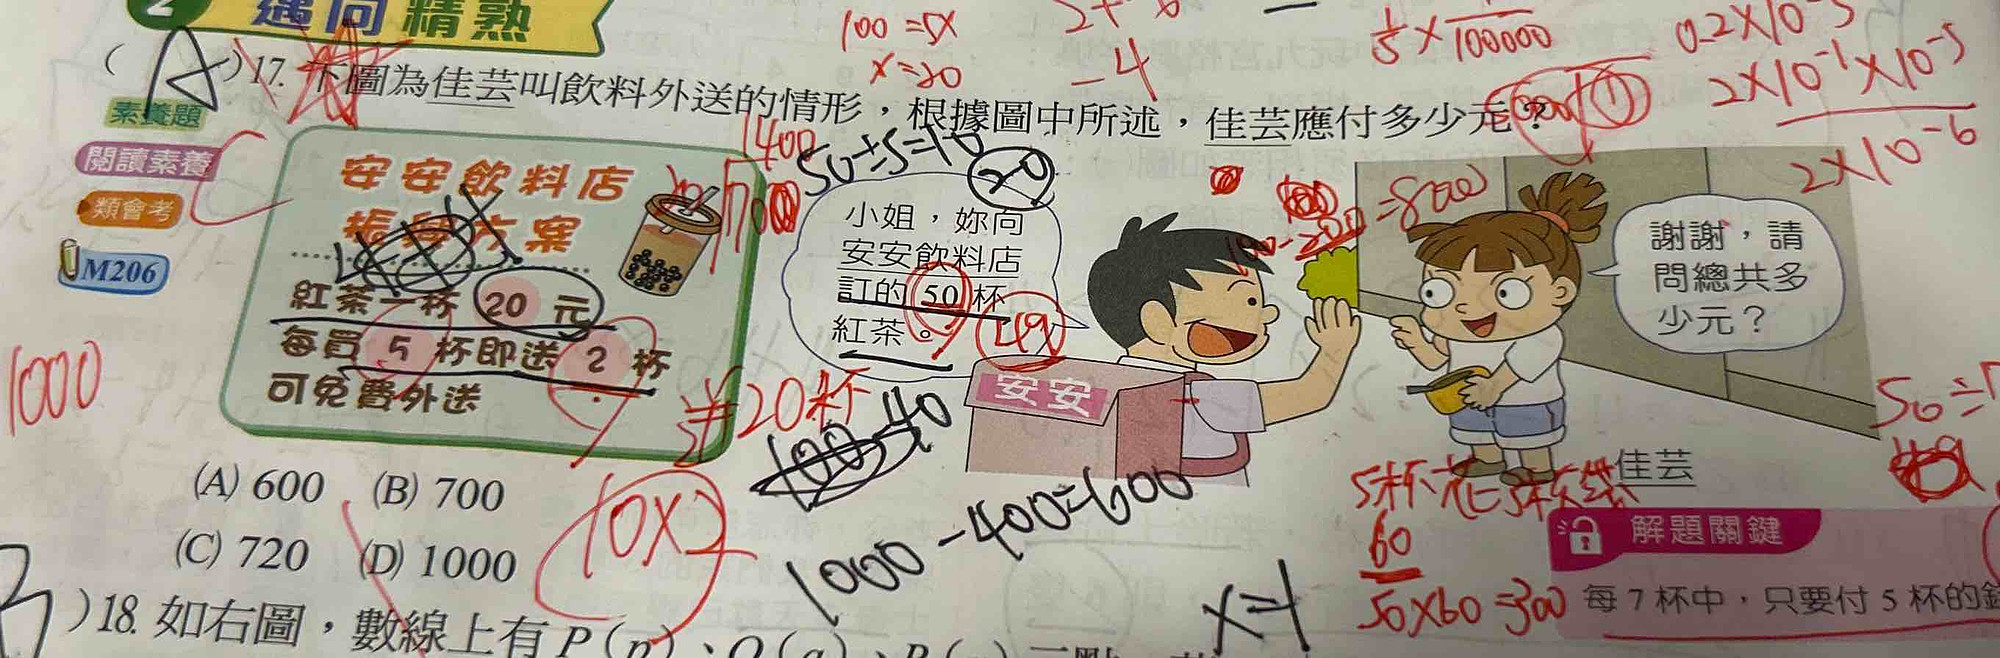 2 遇向精熟
100=5x
x=20
-4
0.2×10⁻⁵
2×10⁻¹×10⁻⁵
2×10⁻⁶
(A)17. 下圖為佳芸叫飲料外送的情形，根據圖中所述，佳芸應付多少元？
素養題
閱讀素養
類會考
M206
C
安安飲料店
振興方案
紅茶一杯 20 元
每買 5 杯即送 2 杯
可免費外送
1400
50÷5=10
20
小姐，妳向
安安飲料店
訂的 50 杯
紅茶。
49
安安
謝謝，請
問總共多
少元？
佳芸
1000
20杯
10×2
1000-400=600
x=1
60
50×60=300
(A) 600 (B) 700
(C) 720 (D) 1000
解題關鍵
每 7 杯中，只要付 5 杯的錢
)18. 如右圖，數線上有 P(p)、Q(q)、R